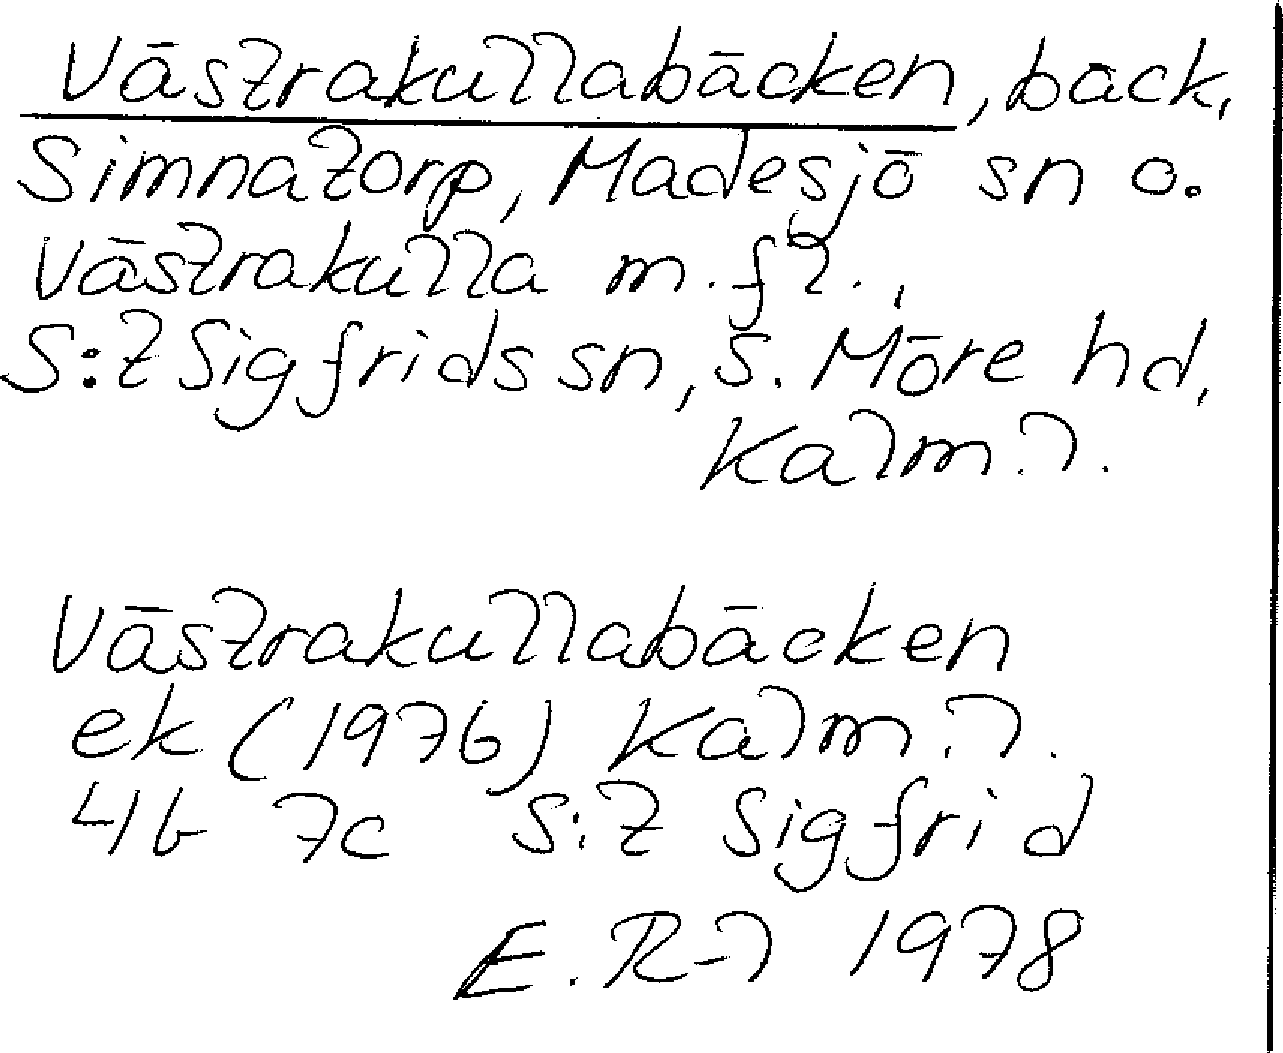 Västrakullabäcken, bäck,
Simnatorp, Madesjö sn o.
Västrakulla m. fl.,
S:t Sigfrids sn, S. Möre hd,
Kalm. l.
Västrakullabäcken
ek (1976) Kalm. l.
4G 7c S:t Sigfrid
E. R-l 1978